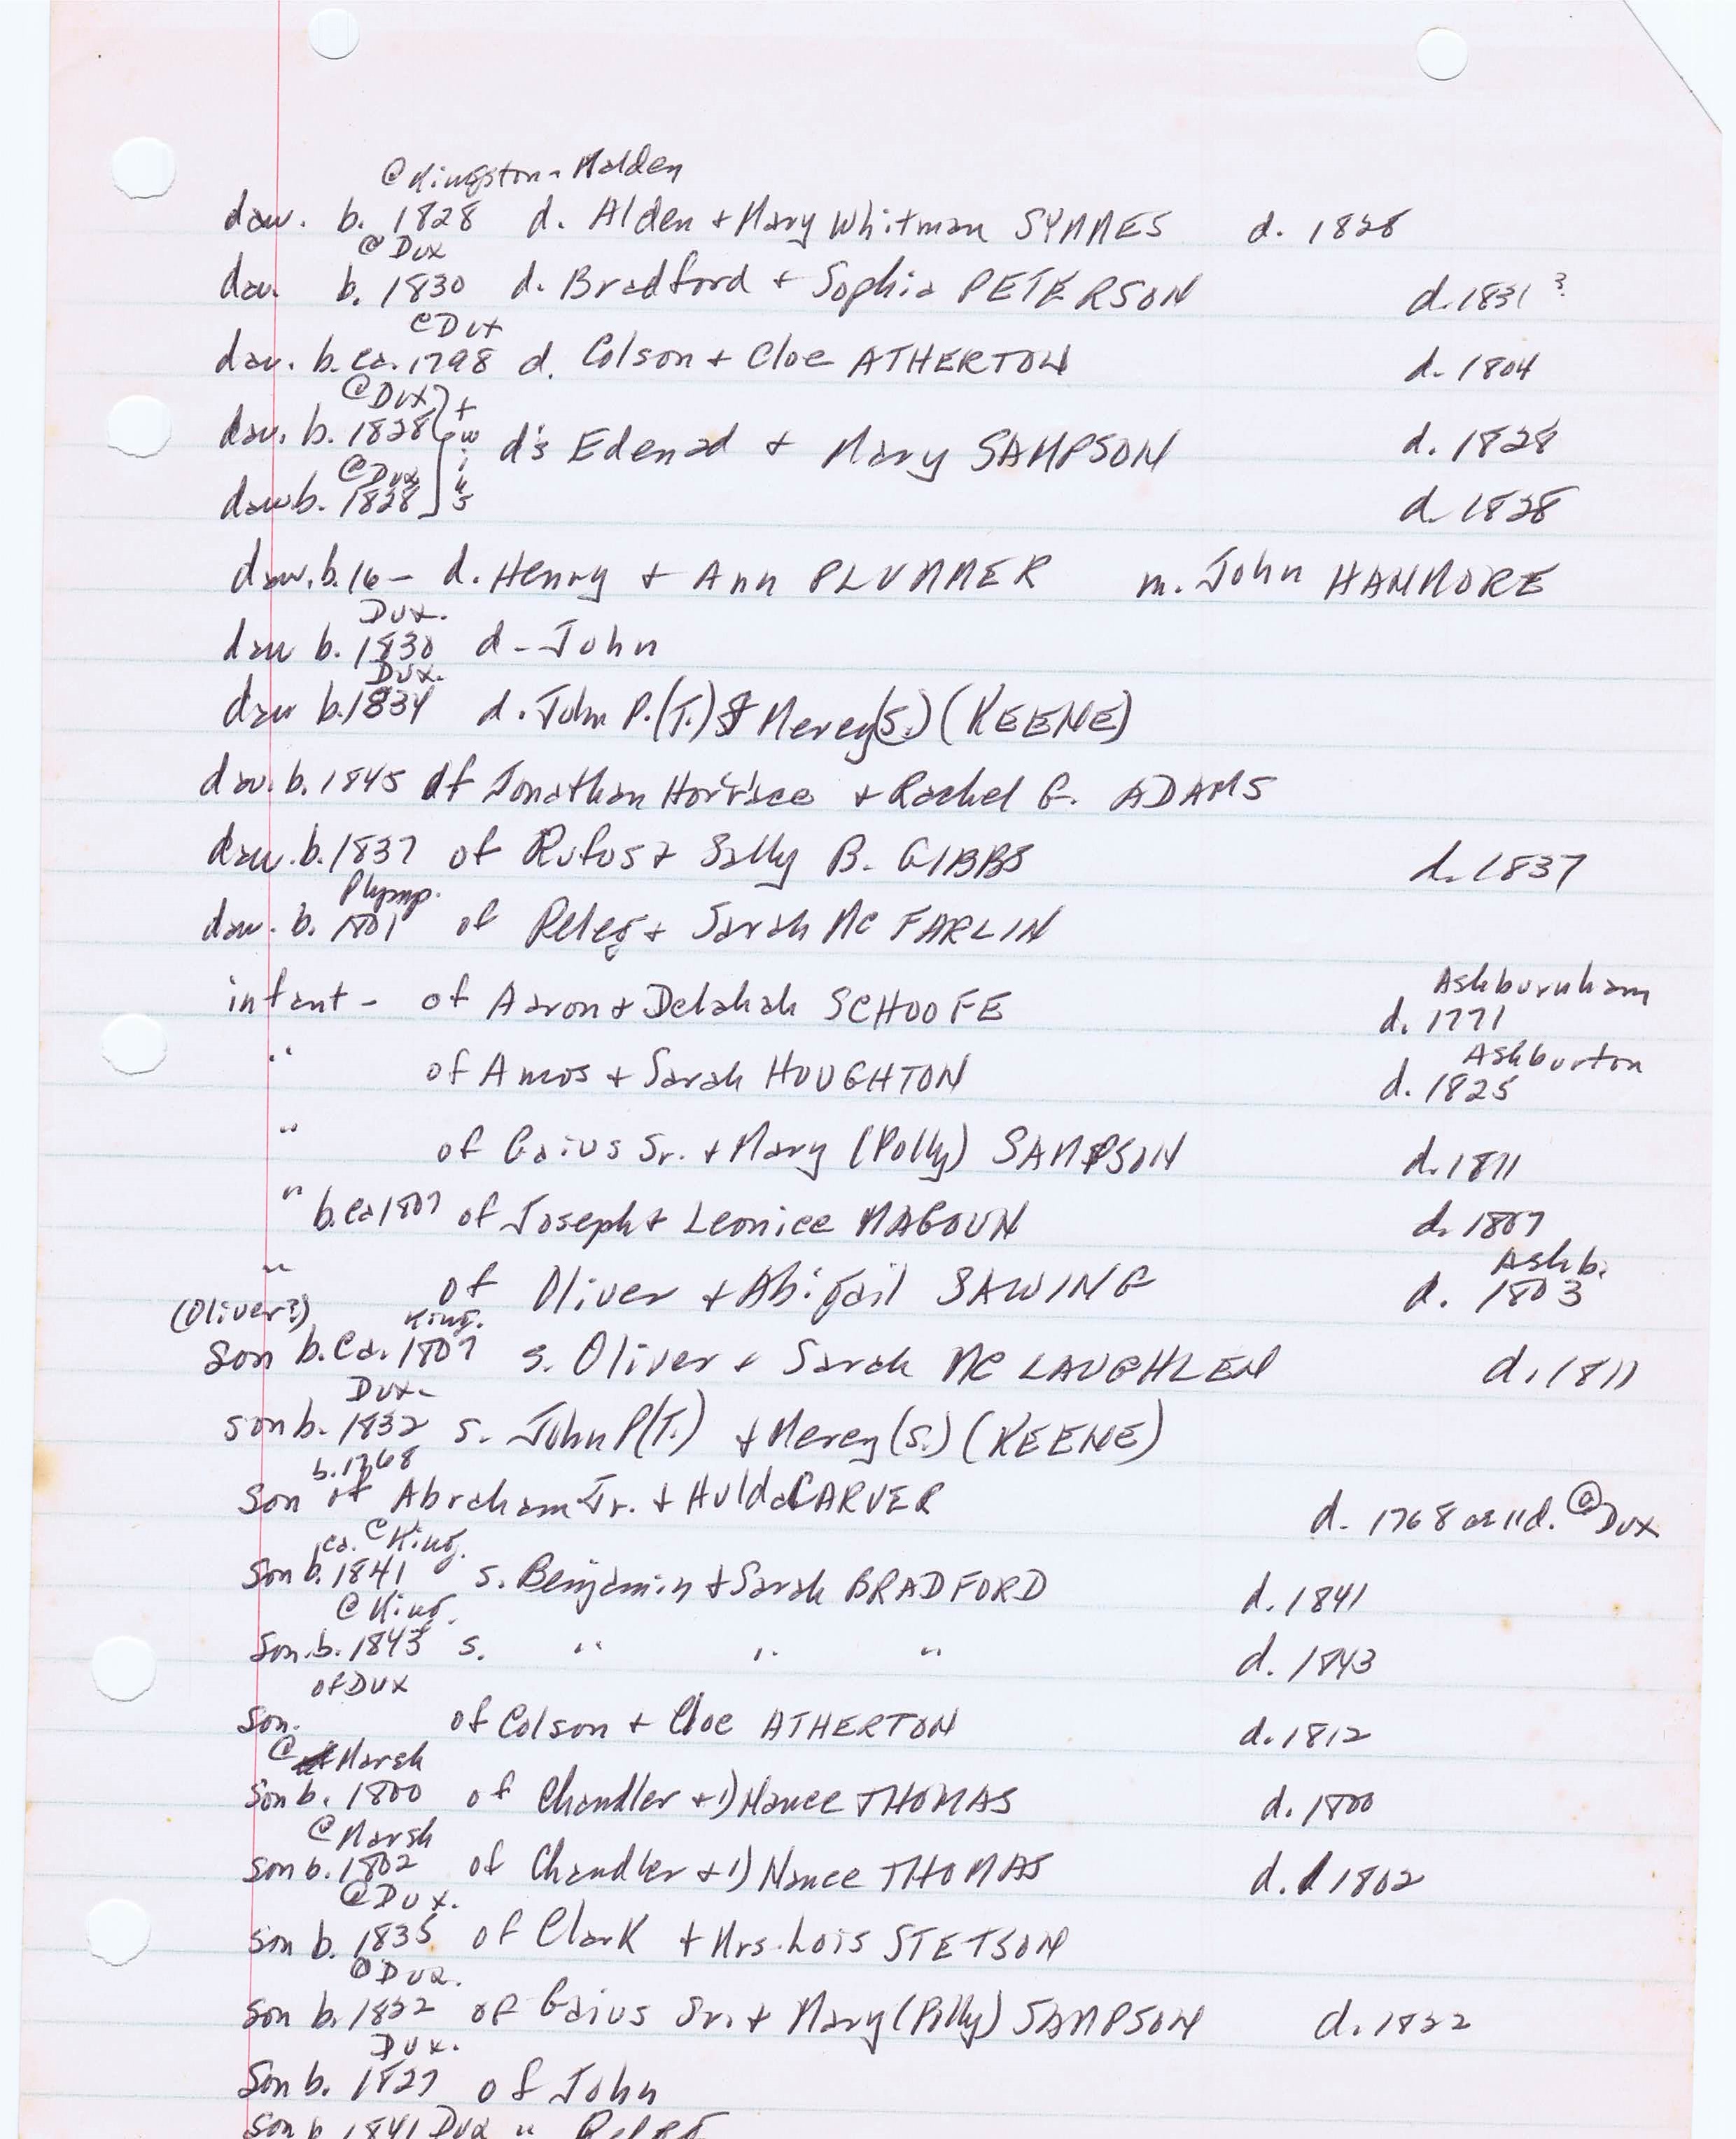 @ Kingston - Malden
dau. b. 1828 d. Alden + Mary Whitman SYMMES d. 1828
@ Dux
dau. b. 1830 d. Bradford + Sophia PETERSON d. 1831 ?
@ Dux
dau. b. ca. 1798 d. Colson + Cloe ATHERTON d. 1804
@ Dux
dau. b. 1828 twins d's Edenad + Mary SAMPSON d. 1828
@ Dux
dau b. 1828 d. 1828
dau. b. 16- d. Henry + Ann PLUMMER m. John HANMORE
Dux.
dau b. 1830 d - John
Dux.
dau b. 1834 d. John P. (T.) & Mercy (S.) (KEENE)
dau. b. 1845 of Jonathan Horrace + Rachel G. ADAMS
dau. b. 1837 of Rufus + Sally B. GIBBS d. 1837
Plymp.
dau. b. 1801 of Peleg + Sarah Mc FARLIN
Ashburnham
infant - of Aaron + Delahah SCHOOFE d. 1771
Ashburton
" of Amos + Sarah HOUGHTON d. 1825
" of Gaius Sr. + Mary (Polly) SAMPSON d. 1811
" b. ca 1807 of Joseph + Leonice MAGOUN d. 1807
Ashb.
" of Oliver + Abigail SAWING d. 1803
(Oliver?) King.
son b. ca. 1807 s. Oliver + Sarah Mc LAUGHLEN d. 1811
Dux-
son b. 1832 s. John P(T.) + Mercy (S.) (KEENE)
b. 1768
son of Abraham Jr. + Hulda CARVER d. 1768 ae 11d. @ Dux
ca. @ King.
son b. 1841 s. Benjamin + Sarah BRADFORD d. 1841
@ King.
son. b. 1843 s. " " " d. 1843
of Dux
son. of Colson + Cloe ATHERTON d. 1812
@ Marsh
son b. 1800 of Chandler + 1) Nance THOMAS d. 1800
@ Marsh
son b. 1802 of Chandler + 1) Nance THOMAS d. 1802
@ Dux.
son b. 1835 of Clark + Mrs. Lois STETSON
@ Dux.
son b. 1822 of Gaius Sr. + Mary (Polly) SAMPSON d. 1822
Dux.
Son b. 1827 of John
son b 1841 Dux "